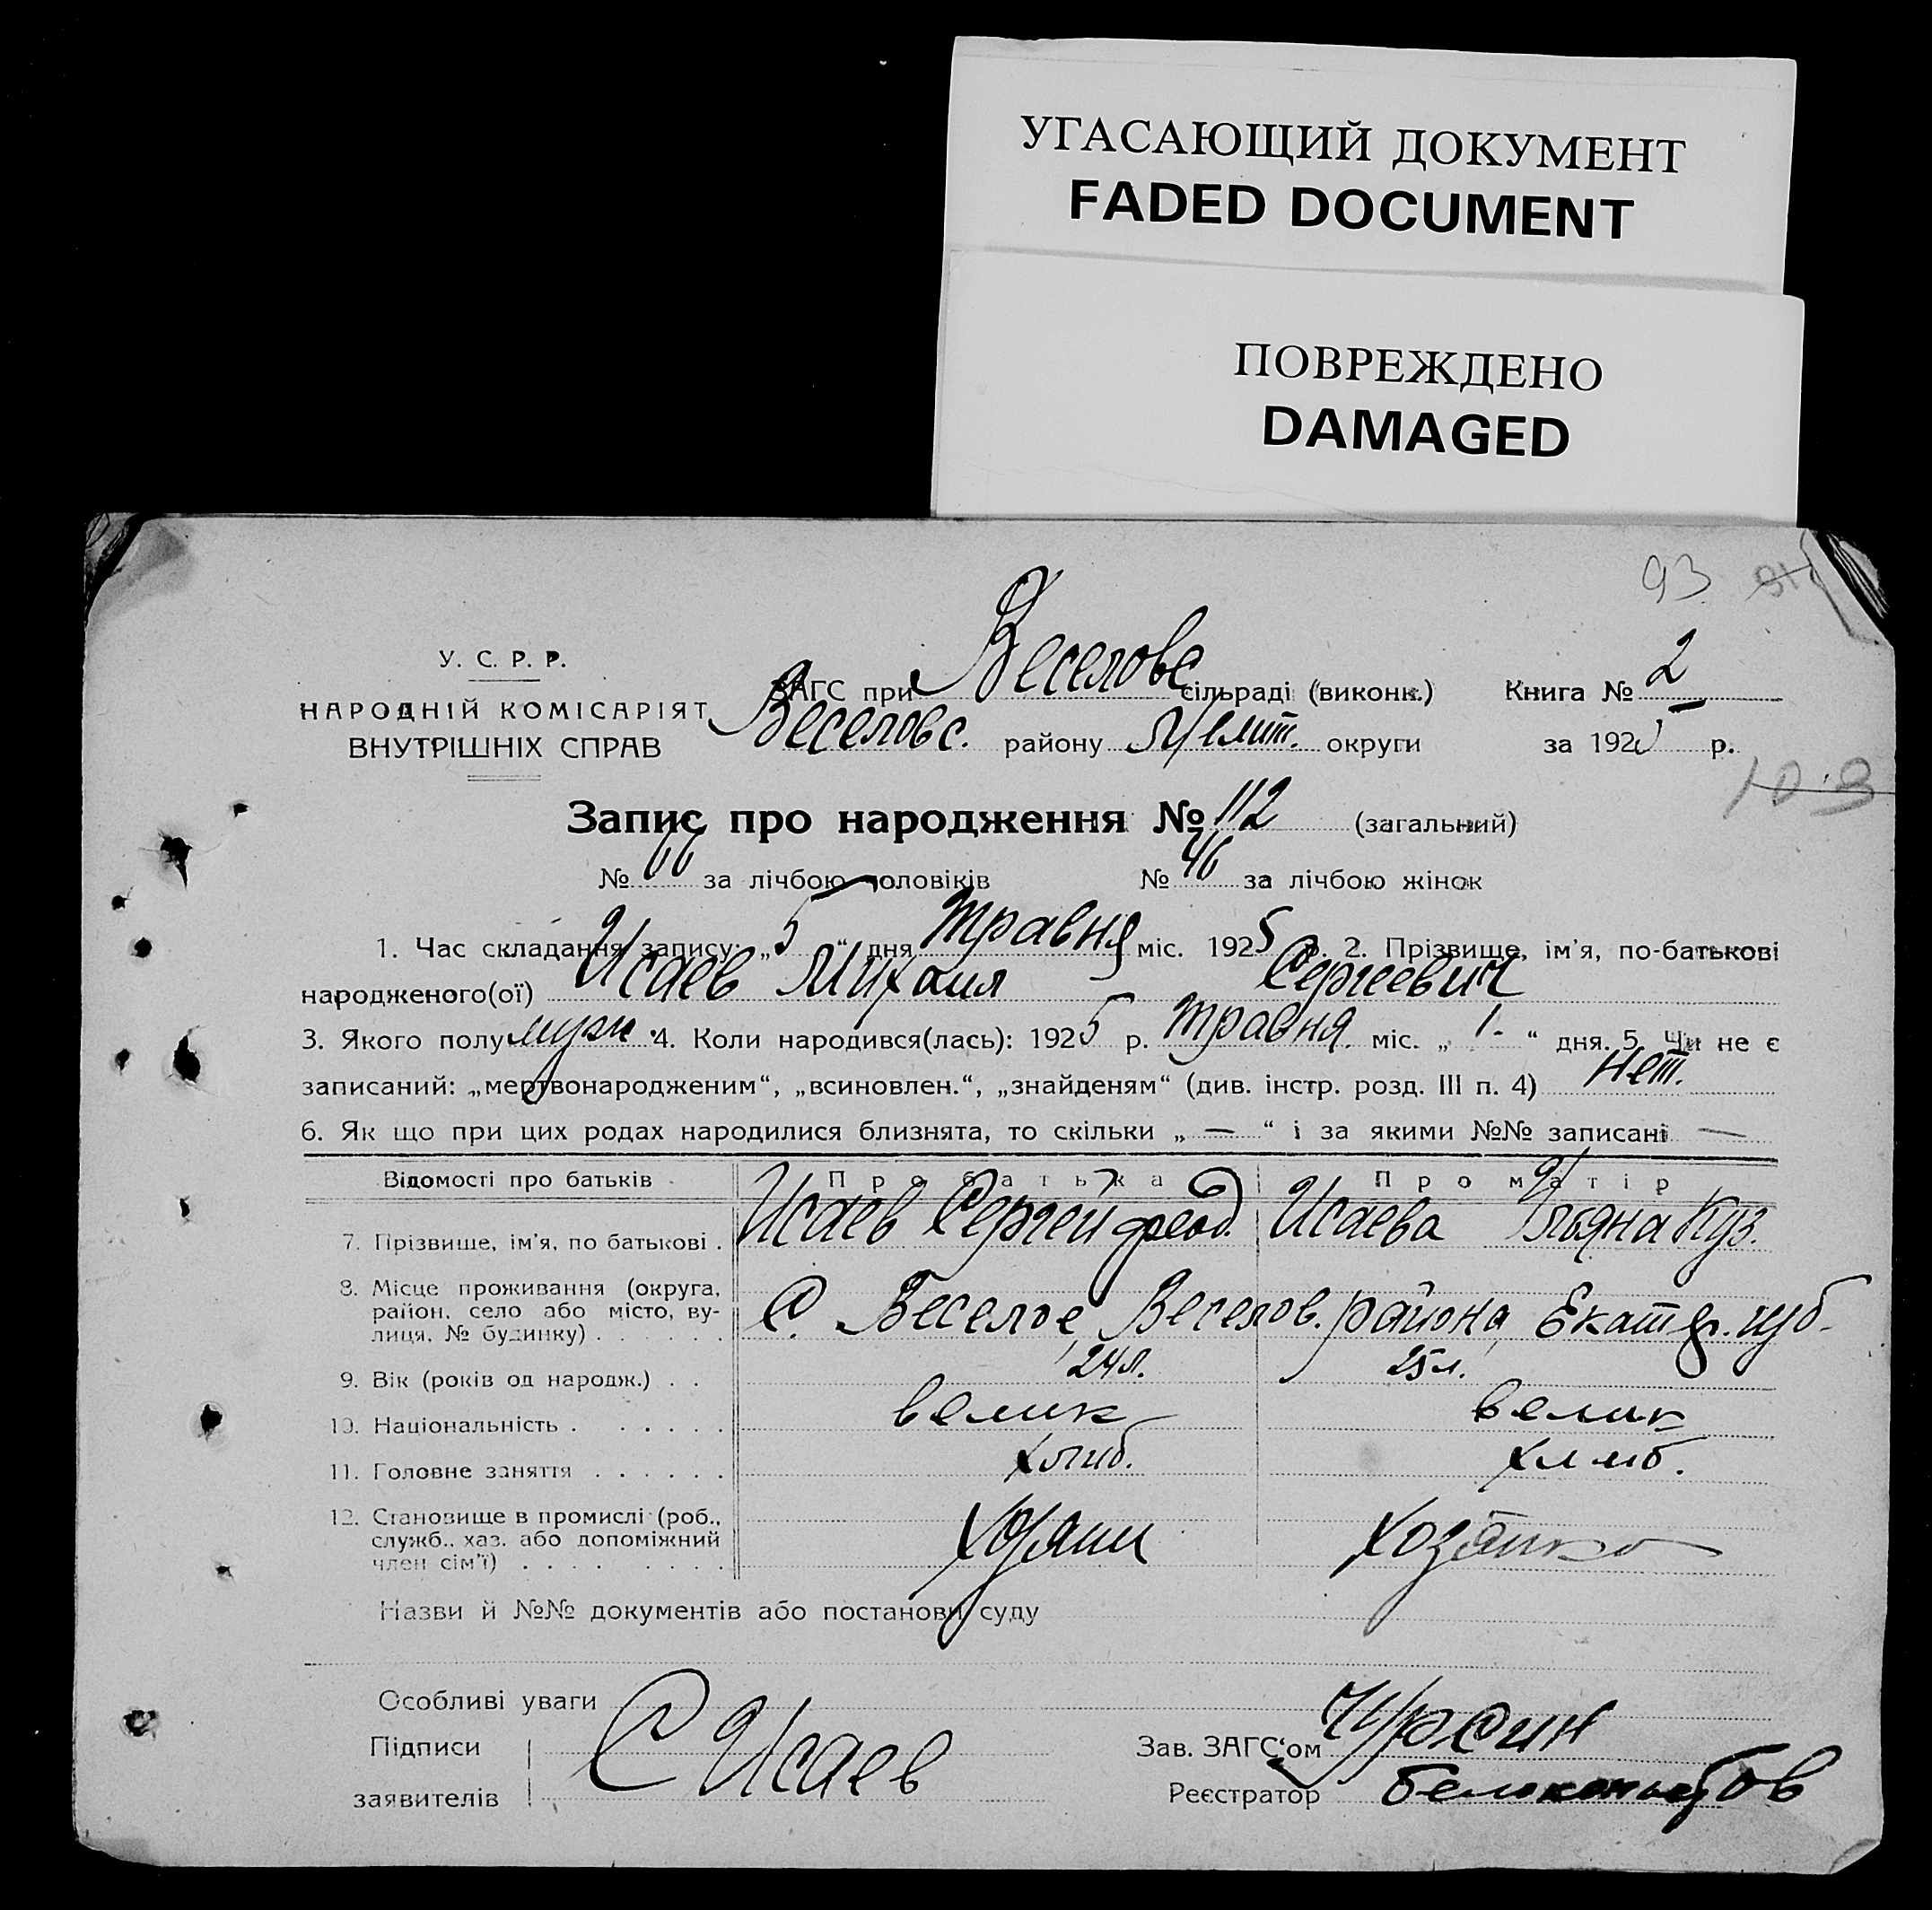 УГАСАЮЩИЙ ДОКУМЕНТ
FADED DOCUMENT
ПОВРЕЖДЕНО
DAMAGED
93
У. С. Р. Р.
НАРОДНІЙ КОМІСАРІЯТ
ВНУТРІШНІХ СПРАВ
ЗАГС при Веселовс сільраді (виконк.) Книга № 2
Веселовс. району Мелит. округи за 1925 р.
103
Запис про народження № 112 (загальний)
№ 66 за лічбою чоловіків № 46 за лічбою жінок
1. Час складання запису: „5“ дня Травня міс. 1925 р. 2. Прізвище, ім'я, по-батькові
народженого(ої) Исаев Михаил Сергеевич
3. Якого полу муж. 4. Коли народився(лась): 1925 р. Травня міс. „1.“ дня. 5. Чи не є
записаний: „мертвонародженим“, „всиновлен.“, „знайденям“ (див. інстр. розд. III п. 4) Нет.
6. Як що при цих родах народилися близнята, то скільки „ — “ і за якими №№ записані —
Відомості про батьків Про батька Про матір
7. Прізвище, ім'я, по батькові . Исаев Сергей Феод. Исаева Ульяна Куз.
8. Місце проживання (округа,
район, село або місто, ву-
лиця, № будинку) . . . . . . С. Веселое Веселов. района Екатер. губ.
9. Вік (років од народж.) . . 24 л. 25 л.
10. Національність . . . . . . велик велик
11. Головне заняття . . . . . . хлиб. хлиб.
12. Становище в промислі (роб.,
служб., хаз. або допоміжний
член сім'ї) . . . . . . . . Хозяин Хозяйка
Назви й №№ документів або постанови суду
Особливі уваги
Підписи
заявителів С Исаев
Зав. ЗАГС'ом
Реєстратор